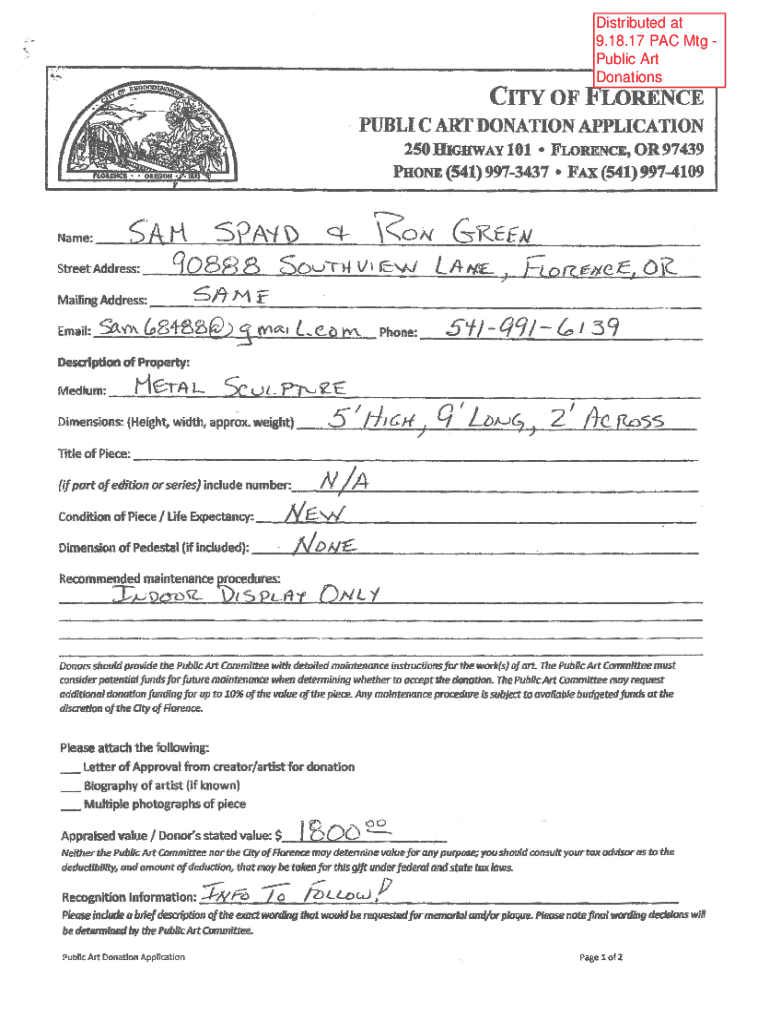 Distributed at
9.18.17 PAC Mtg -
Public Art
Donations
CITY OF RHODODENDRONS
FLORENCE • OREGON • 1893
CITY OF FLORENCE
PUBLIC ART DONATION APPLICATION
250 HIGHWAY 101 • FLORENCE, OR 97439
PHONE (541) 997-3437 • FAX (541) 997-4109
Name: SAM SPAYD & RON GREEN
Street Address: 90888 SOUTHVIEW LANE, FLORENCE, OR
Mailing Address: SAME
Email: Sam68488@gmail.com Phone: 541-991-6139
Description of Property:
Medium: METAL SCULPTURE
Dimensions: (Height, width, approx. weight) 5' HIGH, 9' LONG, 2' ACROSS
Title of Piece:
(if part of edition or series) include number: N/A
Condition of Piece / Life Expectancy: NEW
Dimension of Pedestal (if included): NONE
Recommended maintenance procedures:
INDOOR DISPLAY ONLY
Donors should provide the Public Art Committee with detailed maintenance instructions for the work(s) of art. The Public Art Committee must
consider potential funds for future maintenance when determining whether to accept the donation. The Public Art Committee may request
additional donation funding for up to 10% of the value of the piece. Any maintenance procedure is subject to available budgeted funds at the
discretion of the City of Florence.
Please attach the following:
___ Letter of Approval from creator/artist for donation
___ Biography of artist (if known)
___ Multiple photographs of piece
Appraised value / Donor's stated value: $ 1800.00
Neither the Public Art Committee nor the City of Florence may determine value for any purpose; you should consult your tax advisor as to the
deductibility, and amount of deduction, that may be taken for this gift under federal and state tax laws.
Recognition Information: INFO TO FOLLOW!
Please include a brief description of the exact wording that would be requested for memorial and/or plaque. Please note final wording decisions will
be determined by the Public Art Committee.
Public Art Donation Application Page 1 of 2